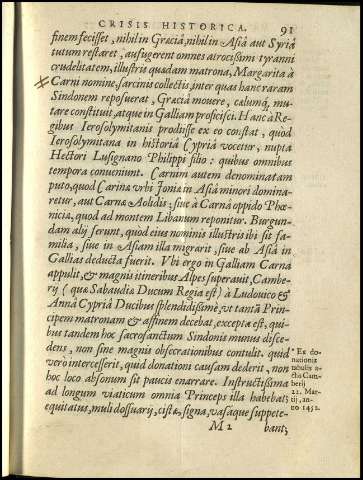 CRISIS HISTORICA. 91
finem fecisset, nihil in Græciâ, nihil in Asiâ aut Syriâ
tutum restaret, aufugerent omnes atrocissimi tyranni
crudelitatem, illustris quædam matrona, Margarita à
Carni nomine, sarcinis collectis, inter quas hanc raram
Sindonem reposuerat, Græciâ mouere, cælumq́, mu-
tare constituit, atque in Galliam proficisci. Hanc à Re-
gibus Ierosolymitanis prodÿsse ex eo constat, quòd
Ierosolymitana in historiâ Cypriâ vocetur, nupta
Hectori Lusignano Philippi filio: quibus omnibus
tempora conueniunt. Carnim autem denominatam
puto, quòd Carina vrbi Ioniæ in Asiâ minori domina-
retur, aut Carnæ Æolidis; siue à Carnâ oppido Phœ-
niciæ, quod ad montem Libanum reponitur. Burgun-
dam alij ferunt, quòd eius nominis illustris ibi sit fa-
milia, siue in Asiam illa migrarit, siue ab Asiâ in
Gallias deducta fuerit. Vbi ergo in Galliam Carna
appulit, & magnis itineribus Alpes superauit, Cambe-
rij (quæ Sabaudiæ Ducum Regia est) à Ludouico &
Annâ Cypriâ Ducibus splendidissimè, vt tantã Prin-
cipem matronam & affinem decebat, excepta est, qui-
bus tandem hoc sacrosanctum Sindonis munus disce-
dens, non sine magnis obsecrationibus contulit. quid
verò intercesserit, quod donationi causam dederit, non
hoc loco absonum sit paucis enarrare. Instructissima
ad longum viaticum omnia Princeps illa habebat;
equitatus, muli dossuarij, cistæ, signa, vasaque suppete-
M 2 bant;
Ex do-
nationis
tabulis a-
ctis Cam-
berij
22. Mar-
tij, an-
no 1452.